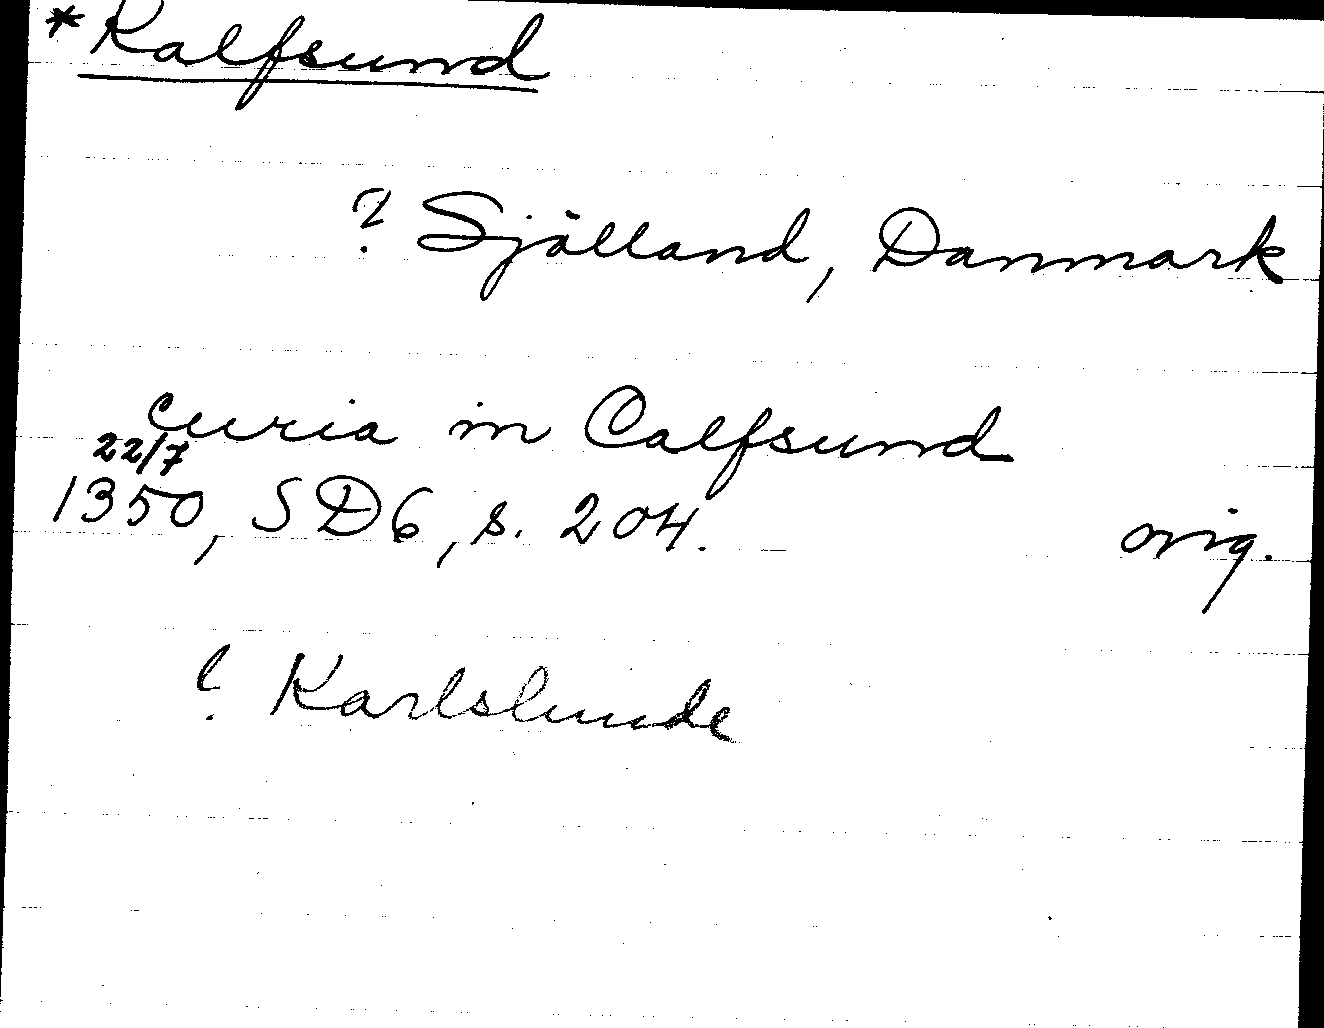 *Kalfsund
? Själland, Danmark
curia in Calfsund
22/7
1350, SD6, s. 204. orig.
? Karlslunde